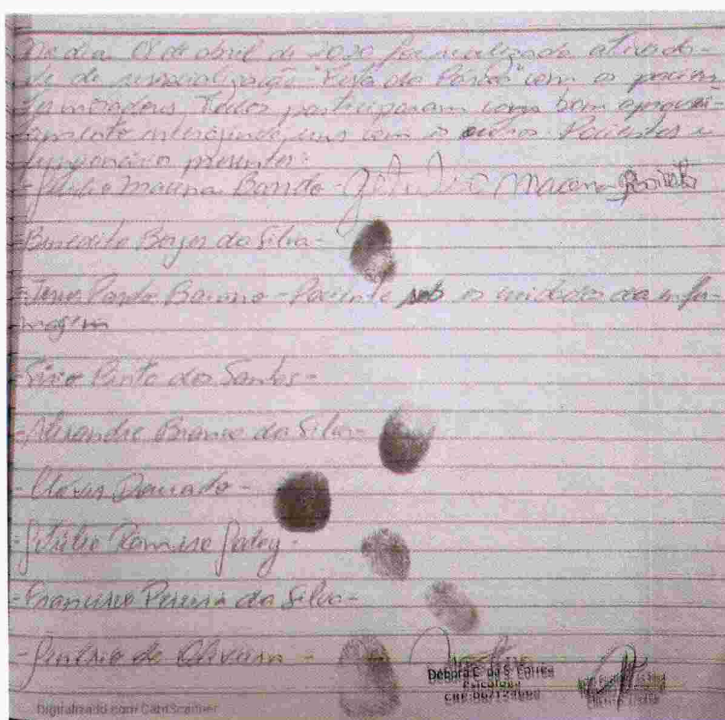 No dia 08 de abril de 2020 foi realizado ativida-
de de ressocialização "Rifa da Páscoa" com os pacien
tes moradores, Todos participaram com bom aprovei
tamente interagindo uns com os outros. Pacientes e
funcionário presentes:
- Getulio Macena Bando - Getulio Macena
- Benedito Borges da Silva -
- Paciente sob os cuidados da enfer
magem
- Pinto dos Santos -
- Alexandre Branco da Silva -
- Clovis Dourado -
- Getúlio Ramiro -
- Francisco Pereira da Silva -
- de Oliveira -
Débora C. da S. Corrêa
Psicóloga
Digitalizado com CamScanner